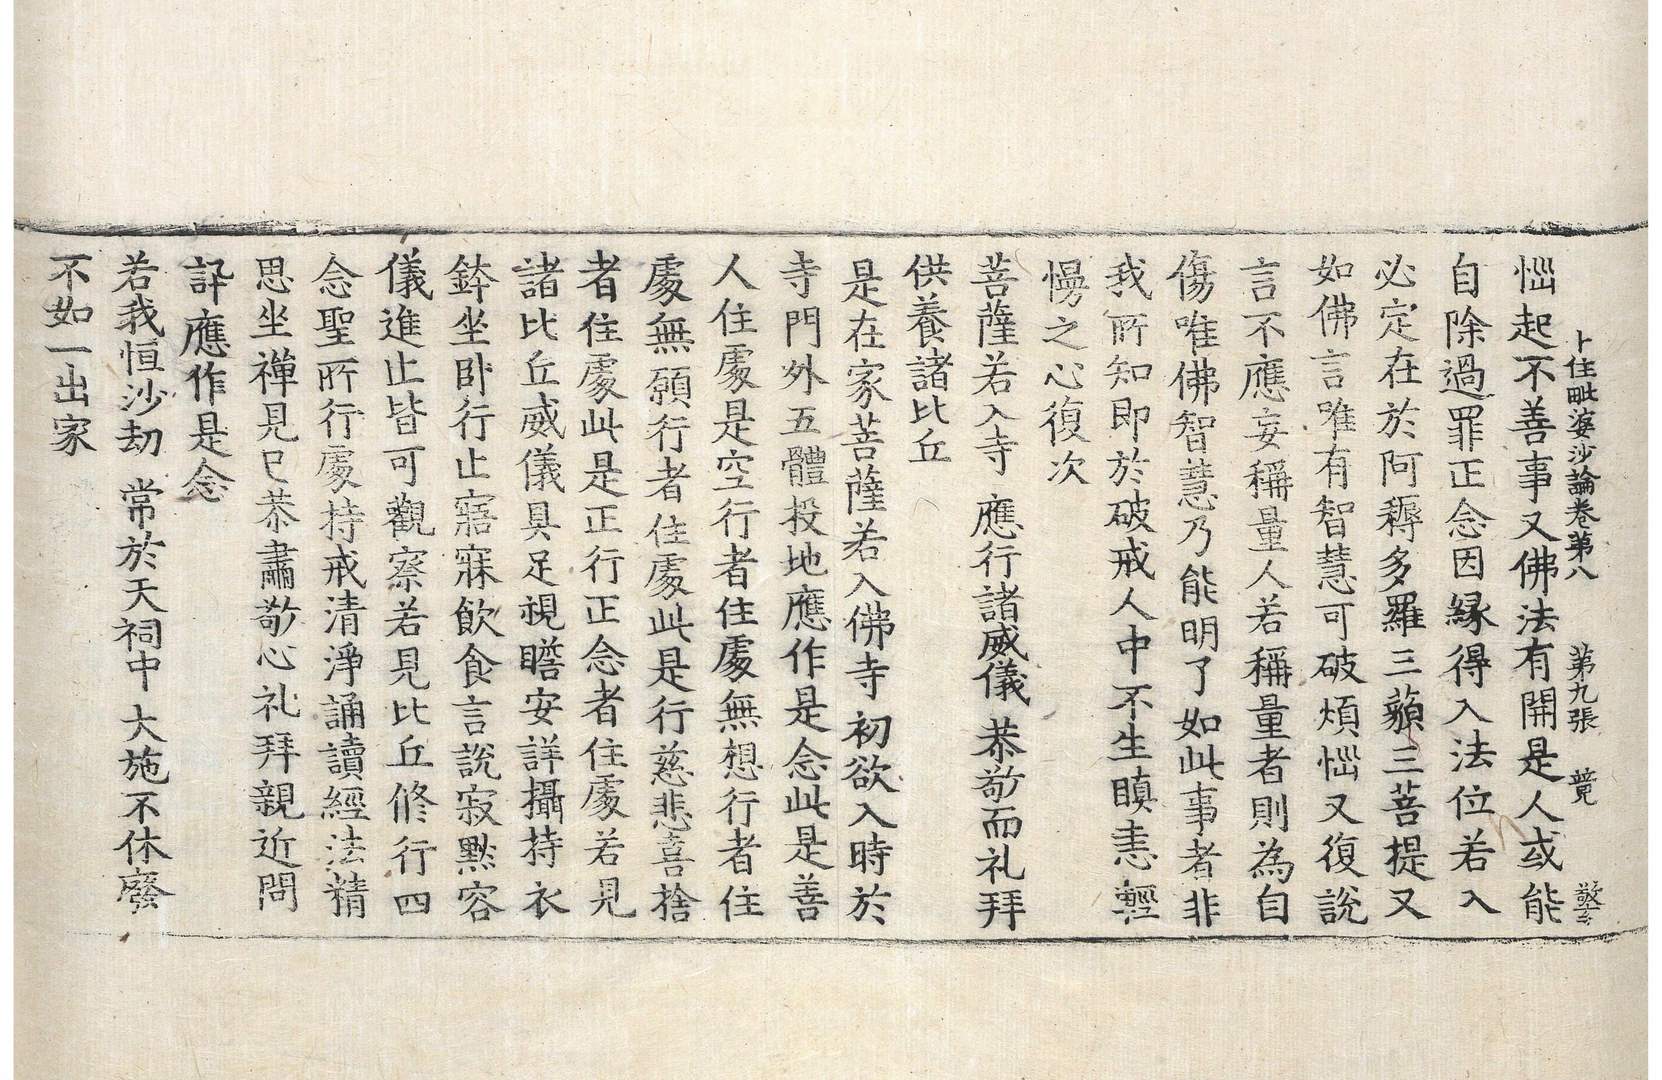 十住毗婆沙論卷第八　第九張　競
惱起不善事又佛法有開是人或能
自除過罪正念因緣得入法位若入
必定在於阿耨多羅三藐三菩提又
如佛言唯有智慧可破煩惱又復說
言不應妄稱量人若稱量者則為自
傷唯佛智慧乃能明了如此事者非
我所知即於破戒人中不生瞋恚輕
慢之心復次
菩薩若入寺　應行諸威儀　恭敬而礼拜
供養諸比丘
是在家菩薩若入佛寺初欲入時於
寺門外五體投地應作是念此是善
人住處是空行者住處無想行者住
處無願行者住處此是行慈悲喜捨
者住處此是正行正念者住處若見
諸比丘威儀具足視瞻安詳攝持衣
鉢坐卧行止寤寐飲食言說寂默容
儀進止皆可觀察若見比丘脩行四
念聖所行處持戒清淨誦讀經法精
思坐禪見已恭肅敬心礼拜親近問
訊應作是念
若我恒沙劫　常於天祠中　大施不休廢
不如一出家